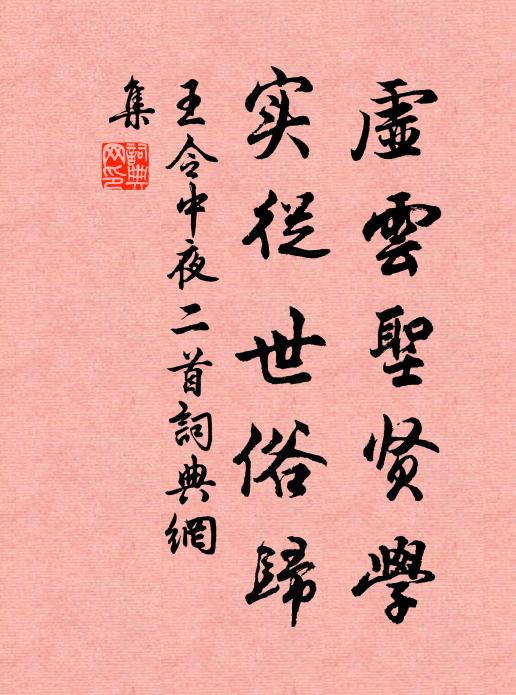 虚雲聖贤學
实從世俗歸
王令中夜二首詞典網
集
詞典
网印